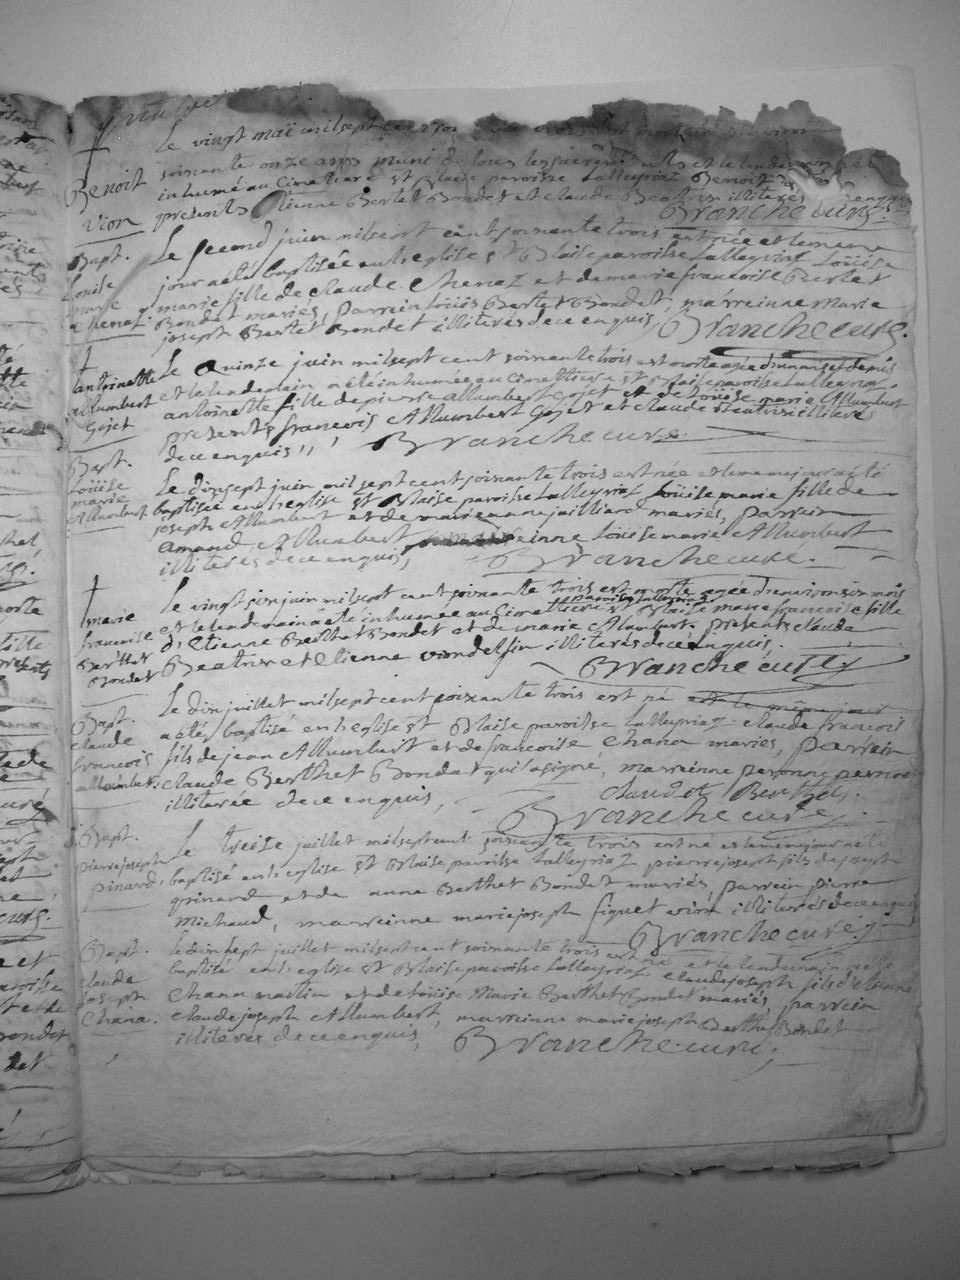 Le vingt maï milsept cent
soixante onze ans muni de tous les sacrem et le lendemain
Benoit
inhumé au Cimetiere st Blaise paroisse Lalleyriaz Benoit
vion
presents Etienne Bertet Bondet et claude Beatrix illiteres
Branche curé
Bapt.
Louise
marie
chenaz
Le second juin milsept cent soixante trois est née et le meme
jour a été baptisée en leglise st Blaise paroisse Lalleyriaz Loüise
marie fille de claude Chenaz et de marie francoise Bertet
Bondet maries, parrein Loüis Bertet Bondet, marreinne Marie
joseph Bertet Bondet illiterés de ce enquis, Branche curé.
antoinette
allumbert
Gojet
Le quinze juin milsept cent soixante trois est morte agée d'un an et demis
et le lendemain a été inhumée au Cimettiere st Blaise paroisse Lalleyriaz
antoinette fille de pierre allumbert Gojet et de Loüise marie Allumbert
presents francois Allumbert Gojet et claude illiteres
de ce enquis Branche curé.
Bapt.
Loüise
marie
Allumbert
Le dixsept juin mil sept cent soixante trois est née et le meme jour a été
baptisée en leglise st Blaise paroisse Lalleyriaz Loüise marie fille de
joseph Allumbert et de marie anne juilliard mariés, parrein
amand Allumbert marreinne Loüise marie Allumbert
illiterés de ce enquis, Branche curé.
marie
francoise
Berthet
Bondet
Le vingt six juin milsept cent soixante trois est morte agée d'environ six mois
et le lendemain a été inhumée au Cimettiere st Blaise marie francoise fille
d'Etienne Berthet Bondet et de marie Allumbert. presents claude
Beatrix et Etienne vion delphin illiterés de ce enquis.
Branche curé
Bapt.
claude
francois
allombert.
Le dix juillet milsept cent soixante trois est né et le même jour
a été baptisé en leglise st Blaise paroisse Lalleyriaz claude francois
fils de jean Allumbert et de francoise Chana maries, parrein
claude Berthet Bondat qui a signé, marreinne peronne pernod
illiterée de ce enquis, claudot Berthet.
Branche curé
Bapt.
pierre joseph
pinard.
Le treise juillet milsept cent soixante trois est né et le meme jour a été
baptisé en leglise st Blaise paroisse Lalleyriaz pierre joseph fils de joseph
pinard et de anne Berthet Bondet mariés, parrein pierre
Michaud, marreinne marie joseph figuet vion illiterés de ce enquis
Branche curé.
Bapt.
claude
joseph
Chana.
Le dixsept juillet milsept cent soixante trois est né et le lendemain a été
baptisé en leglise st Blaise paroisse Lalleyriaz claude joseph fils d'Etienne
Chana martin et de Loüise Marie Berthet Bondet mariés, parrein
claude joseph Allumbert, marreinne marie joseph Berthet Bondet
illiterés de ce enquis, Branche curé,